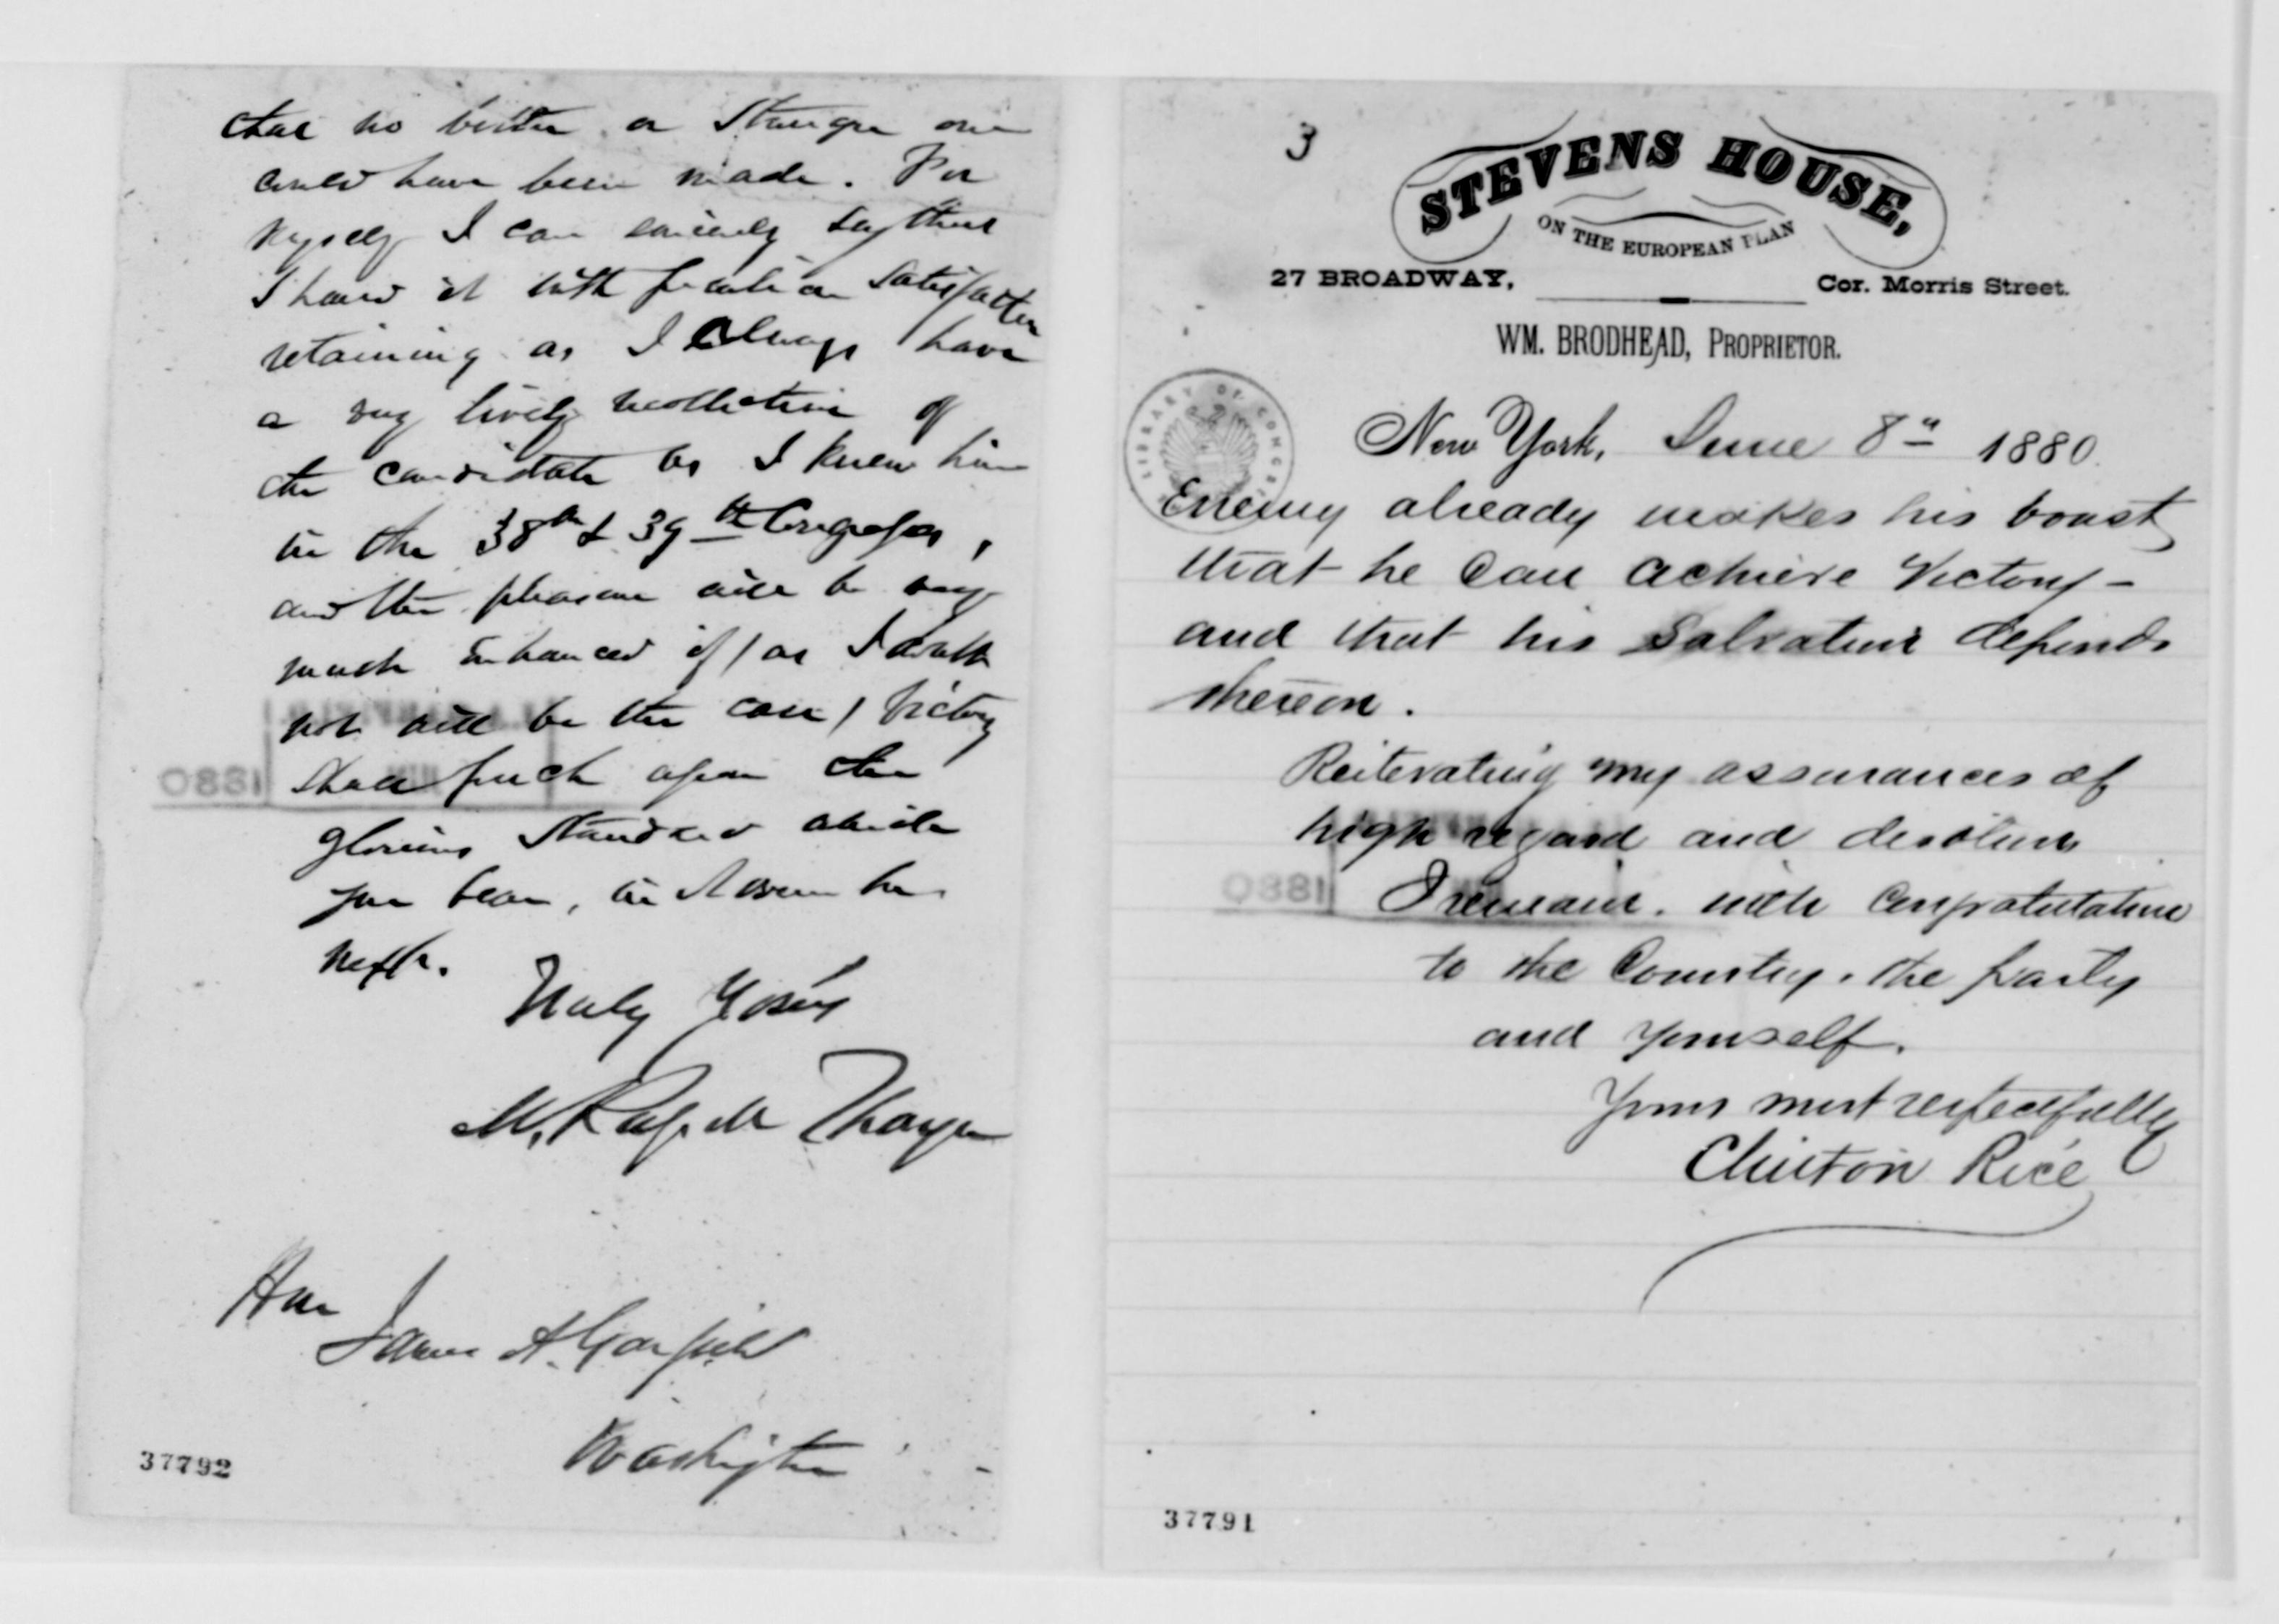 that no better or stronger one
could have been made. For
myself I can sincerely say that
I heard it with peculiar satisfaction
retaining as I always have
a very lively recollection of
the candidate as I knew him
in the 38th & 39th Congresses,
and the pleasure will be very
much enhanced if (as I doubt
not will be the case) victory
shall perch upon the
glorious standard which
you bear, in November
next.
Truly Yours
M. Russell Thayer
Hon
James A. Garfield
Washington
37792
3
STEVENS HOUSE,
ON THE EUROPEAN PLAN
27 BROADWAY, Cor. Morris Street.
WM. BRODHEAD, PROPRIETOR.
LIBRARY OF CONGRESS
New York, June 8" 1880.
Enemy already makes his boast
that he can achieve Victory -
and that his Salvation depends
thereon.
Reiterating my assurances of
high regard and devotion
1880
I remain. with congratulations
to the Country. the party
and yourself.
Yours most respectfully
Clinton Rice
37791